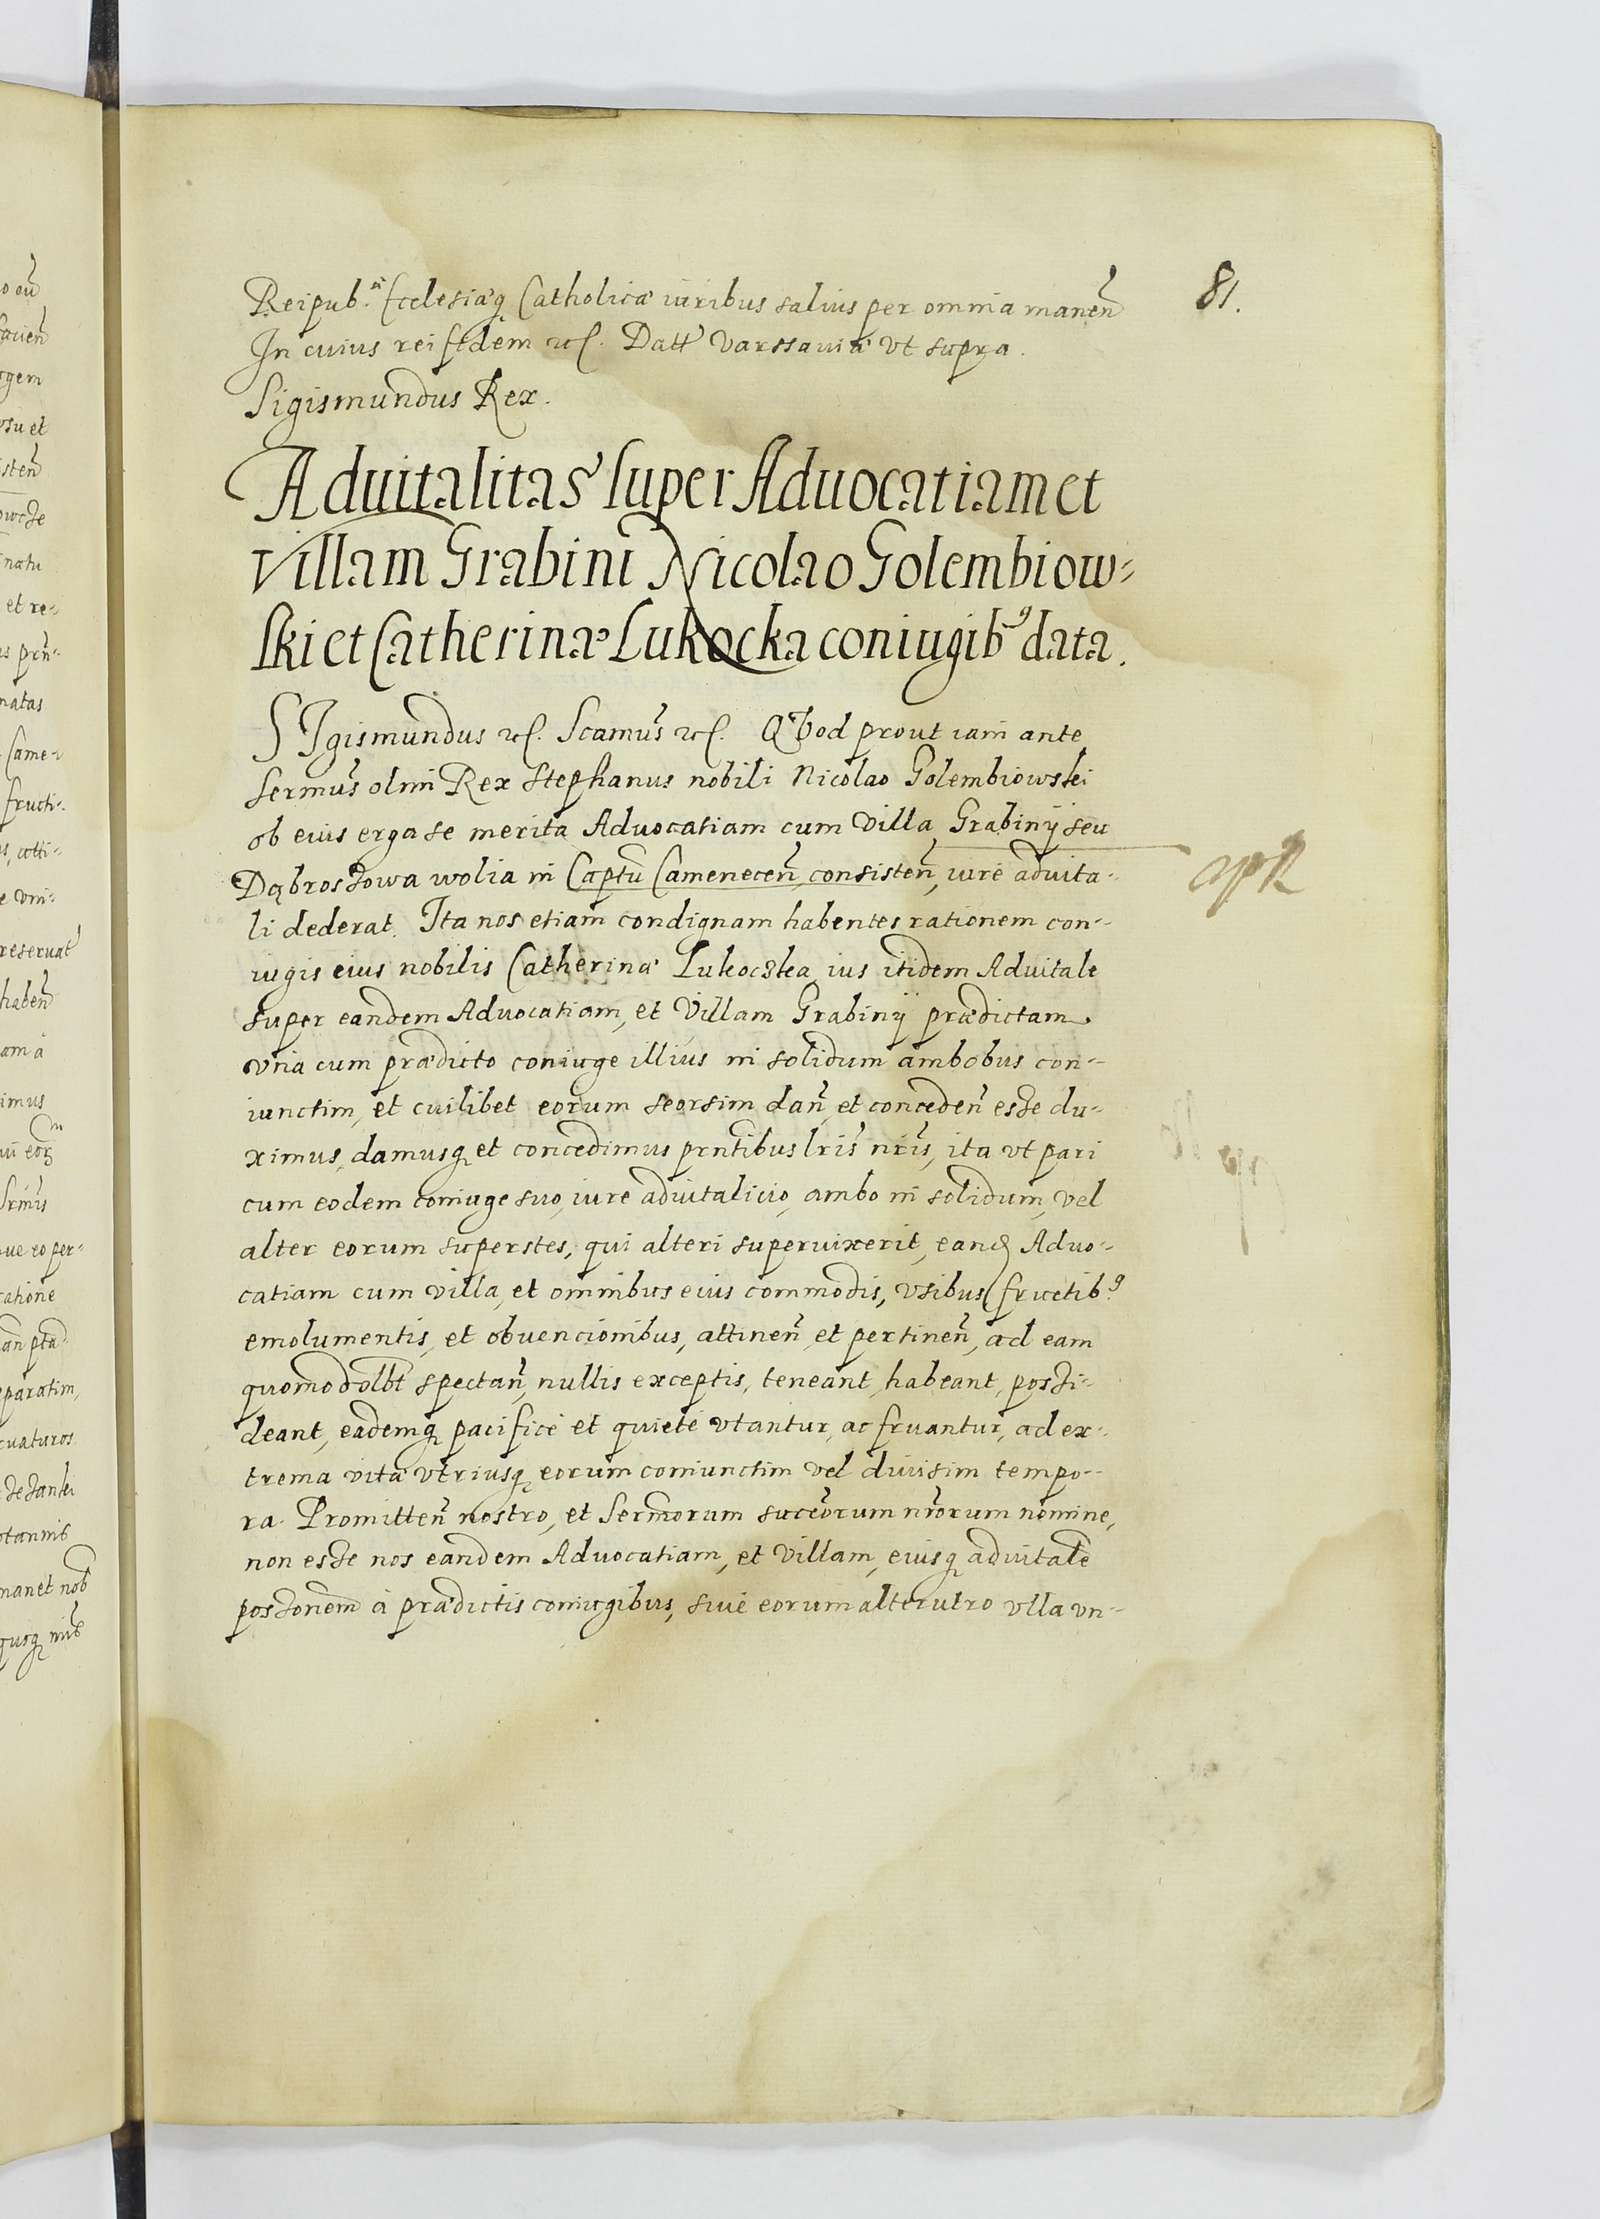 81.
Reipub.æ Ecclesiæq Catholicæ iuribus saluis per omnia maneñ
In cuius rei fidem etc. Datt Varssauiæ vt supra.
Sigismundus Rex.
Aduitalitas super Aduocatiam et
villam Grabini Nicolao Golembiow-
ski et Catherinæ Lukocka coniugib9 data.
SIgismundus etc. Scamus etc. QVod prout iam ante
Sermus olim Rex Stephanus nobili Nicolao Golembiowski
ob eius erga se merita Aduocatiam cum villa Grabinÿ seu
Dąbrossowa wolia in Captu Cameneceñ, consisteñ, iure aduita-
li dederat. Ita nos etiam condignam habentes rationem con-
iugis eius nobilis Catherinæ Lukocska, ius itidem Aduitale
super eandem Aduocatiam, et villam Grabinÿ prædictam
vna cum prædicto coniuge illius in solidum ambobus con-
iunctim, et cuilibet eorum seorsim dañ, et concedeñ esse du-
ximus, damusq et concedimus prntibus lris nris, ita vt pari
cum eodem coniuge suo, iure aduitalicio, ambo in solidum, vel
alter eorum superstes, qui alteri superuixerit, eand Aduo-
catiam cum villa, et omnibus eius commodis, vsibus, fructib9
emolumentis, et obuencionibus, attineñ et pertineñ, ad eam
quomodolbt spectañ, nullis exceptis, teneant, habeant, possi-
deant, eademq pacificè et quietè vtantur, ac fruantur, ad ex-
trema vitæ vtriusq eorum coniunctim vel diuisim tempo-
ra. Promitteñ nostro, et Sermorum succeorum nrorum nomine,
non esse nos eandem Aduocatiam, et villam, eiusq aduitalē
possonem à prædictis coniugibus, siue eorum alterutro vlla vn-